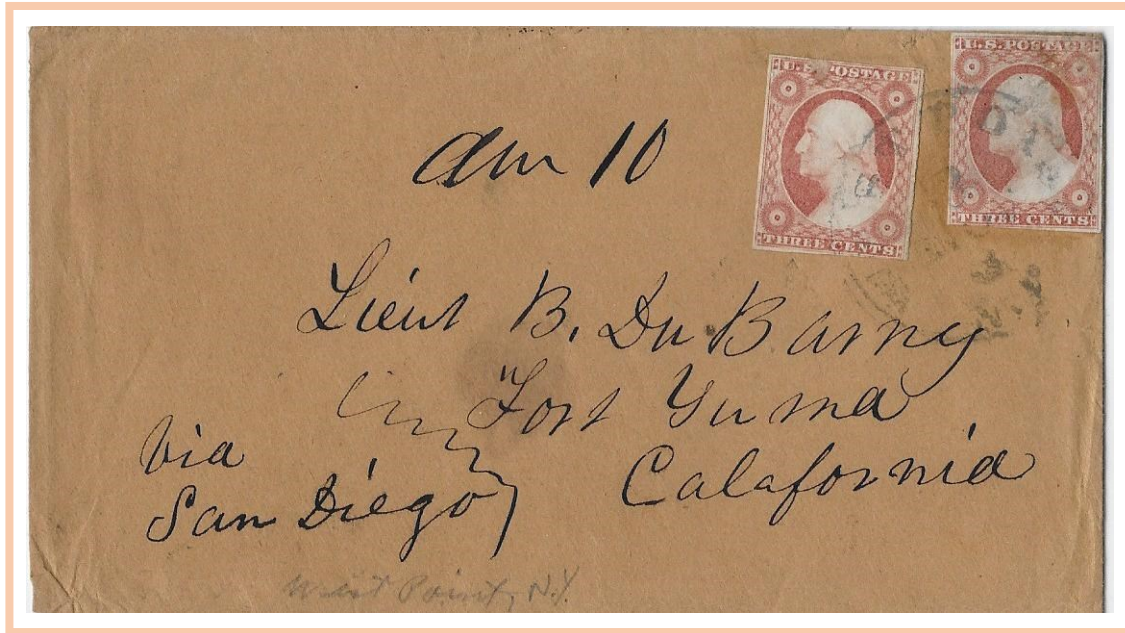 U.S. POSTAGE
THREE CENTS
U.S. POSTAGE
THREE CENTS
10
Lieut B. Du Barry
Fort Yuma
Calafornia
Via
San Diego
West Point, N.Y.